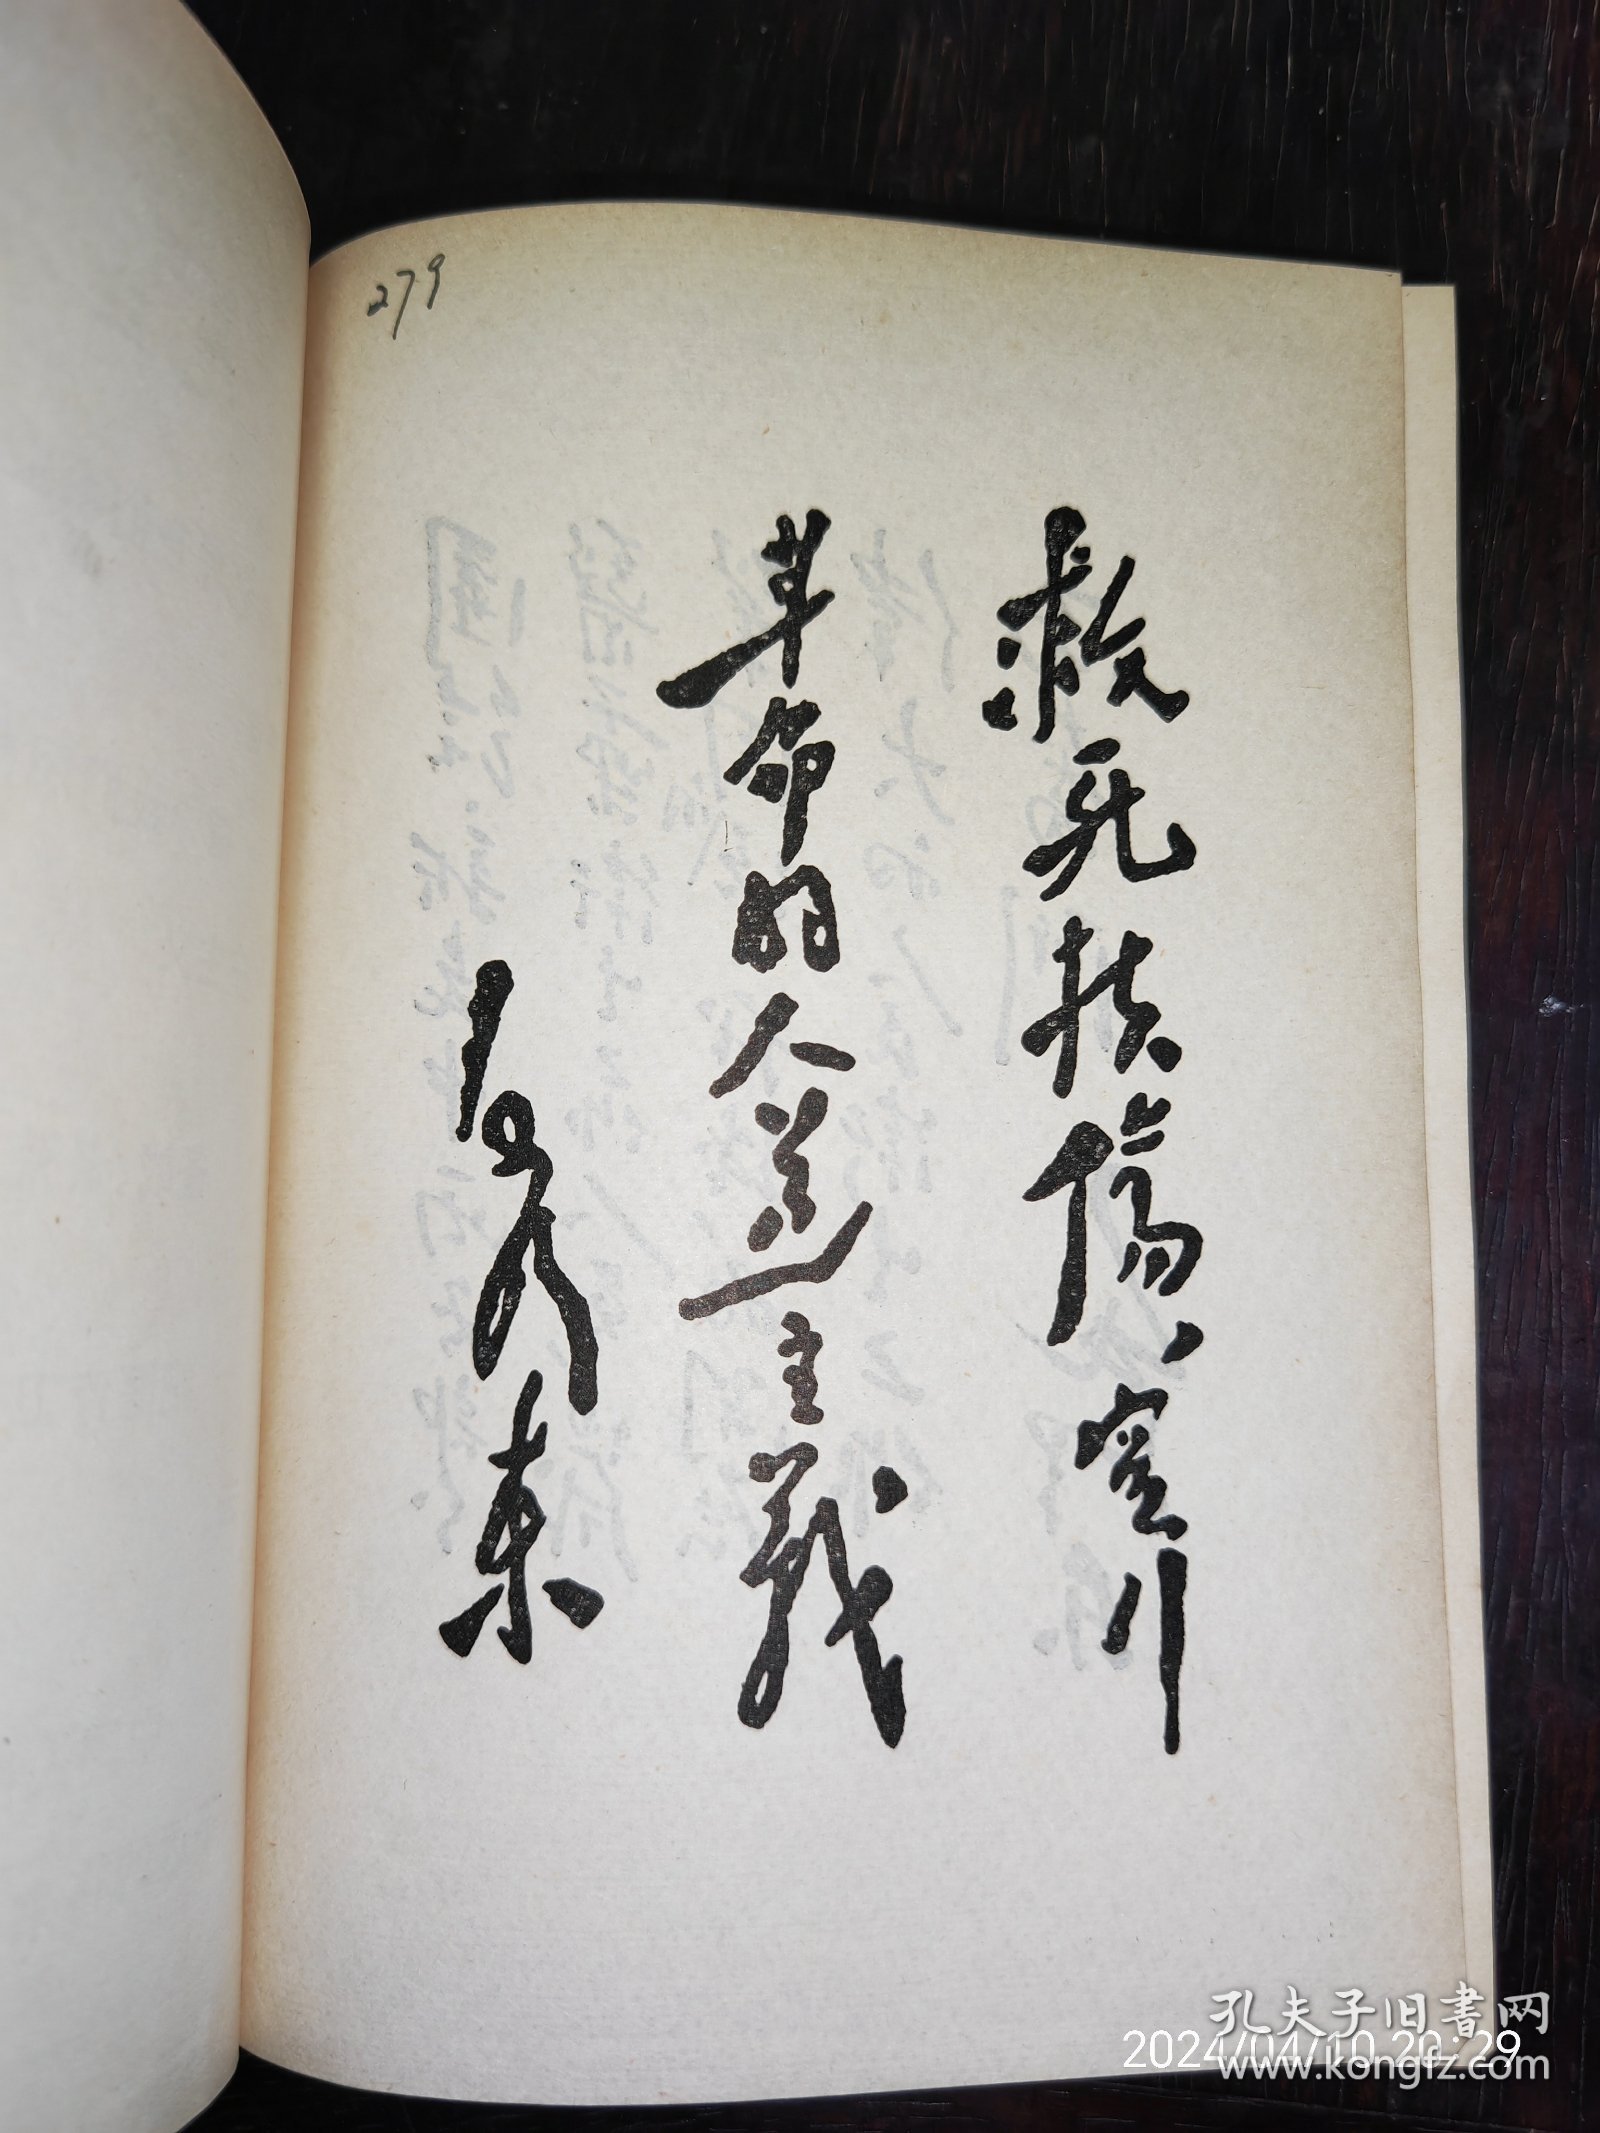 279
救死扶傷、实行
革命的人道主義
毛澤東
孔夫子旧書网
2024/04/10 20:29
www.kongfz.com